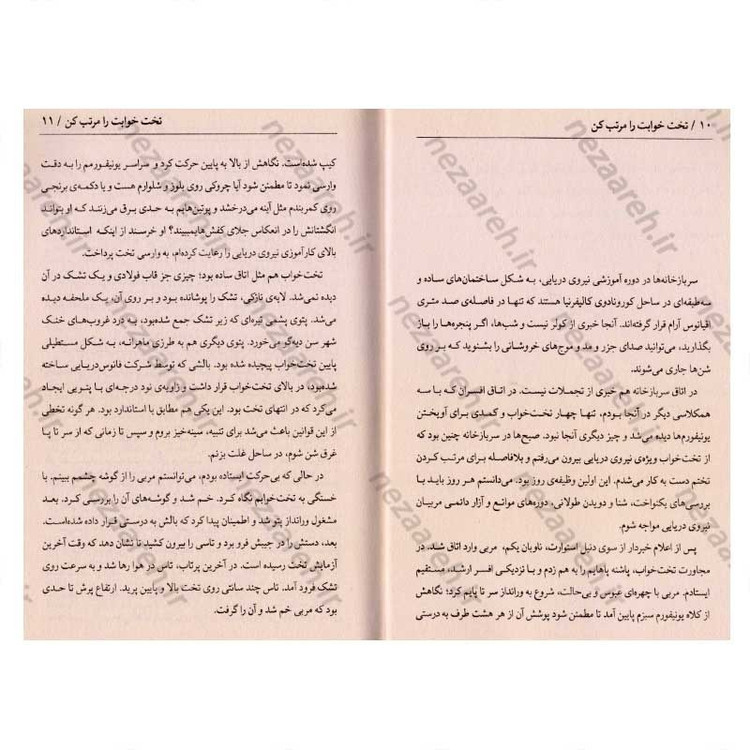 ۱۰ / تخت خوابت را مرتب کن
سربازخانه‌ها در دوره آموزشی نیروی دریایی، به شکل ساختمان‌های ساده و
سه‌طبقه‌ای در ساحل کورونادوی کالیفرنیا هستند که تنها در فاصله‌ی صد متری
اقیانوس آرام قرار گرفته‌اند. آنجا خبری از کولر نیست و شب‌ها، اگر پنجره‌ها را باز
بگذارید، می‌توانید صدای جزر و مد و موج‌های خروشانی را بشنوید که بر روی
شن‌ها جاری می‌شوند.
در اتاق سربازخانه هم خبری از تجملات نیست. در اتاق افسران که با سه
همکلاسی دیگر در آنجا بودم، تنها چهار تخت‌خواب و کمدی برای آویختن
یونیفورم‌ها دیده می‌شد و چیز دیگری آنجا نبود. صبح‌ها در سربازخانه چنین بود که
از تخت‌خواب ویژه‌ی نیروی دریایی بیرون می‌رفتم و بلافاصله برای مرتب کردن
تختم دست به کار می‌شدم. این اولین وظیفه‌ی روز بود. می‌دانستم هر روز باید با
بررسی‌های یکنواخت، شنا و دویدن طولانی، دوره‌های موانع و آزار دائمی مربیان
نیروی دریایی مواجه شوم.
پس از اعلام خبردار از سوی دنیل استوارت، ناوبان یکم، مربی وارد اتاق شد. در
مجاورت تخت‌خواب، پاشنه پاهایم را به هم زدم و با نزدیکی افسر ارشد، مستقیم
ایستادم. مربی با چهره‌ای عبوس و بی‌حالت، شروع به ورانداز سر تا پایم کرد؛ نگاهش
از کلاه یونیفورم سبزم پایین آمد تا مطمئن شود پوشش آن از هر هشت طرف به درستی
تخت خوابت را مرتب کن / ۱۱
کیپ شده‌است. نگاهش از بالا به پایین حرکت کرد و سراسر یونیفورمم را به دقت
وارسی نمود تا مطمئن شود آیا چروکی روی بلوز و شلوارم هست و یا دکمه‌ی برنجی
روی کمربندم مثل آینه می‌درخشد و پوتین‌هایم به حدی برق می‌زنند که او بتواند
انگشتانش را در انعکاس جلای کفش‌هایم‌ببیند؟ او خرسند از اینکه استانداردهای
بالای کارآموزی نیروی دریایی را رعایت کرده‌ام، به وارسی تخت پرداخت.
تخت‌خواب هم مثل اتاق ساده بود؛ چیزی جز قاب فولادی و یک تشک در آن
دیده نمی‌شد. لایه‌ی نازکی، تشک را پوشانده بود و بر روی آن، یک ملحفه دیده
می‌شد. پتوی پشمی تیره‌ای که زیر تشک جمع شده‌بود، به درد غروب‌های خنک
شهر سن دیه‌گو می‌خورد. پتوی دیگری هم به طرزی ماهرانه، به شکل مستطیلی
پایین تخت‌خواب پیچیده شده بود. بالشی که توسط شرکت فانوس‌دریایی ساخته
شده‌بود، در بالای تخت‌خواب قرار داشت و زاویه‌ی نود درجه‌ای با پتویی ایجاد
می‌کرد که در انتهای تخت بود. این یکی هم مطابق با استاندارد بود. هر گونه تخطی
از این قوانین باعث می‌شد برای تنبیه، سینه‌خیز بروم و سپس تا زمانی که از سر تا پا
غرق شن شوم، در ساحل غلت بزنم.
در حالی که بی‌حرکت ایستاده بودم، می‌توانستم مربی را از گوشه چشمم ببینم. با
خستگی به تخت‌خوابم نگاه کرد. خم شد و گوشه‌های آن را بررسی کرد. بعد
مشغول ورانداز پتو شد و اطمینان پیدا کرد که بالش به درستی قرار داده شده‌است.
بعد، دستش را در جیبش فرو برد و تاسی را بیرون کشید تا نشان دهد که وقت آخرین
آزمایش تخت رسیده است. در آخرین پرتاب، تاس در هوا رها شد و به سرعت روی
تشک فرود آمد. تاس چند سانتی روی تخت بالا و پایین پرید. ارتفاع پرش تا حدی
بود که مربی خم شد و آن را گرفت.
nezaareh.ir